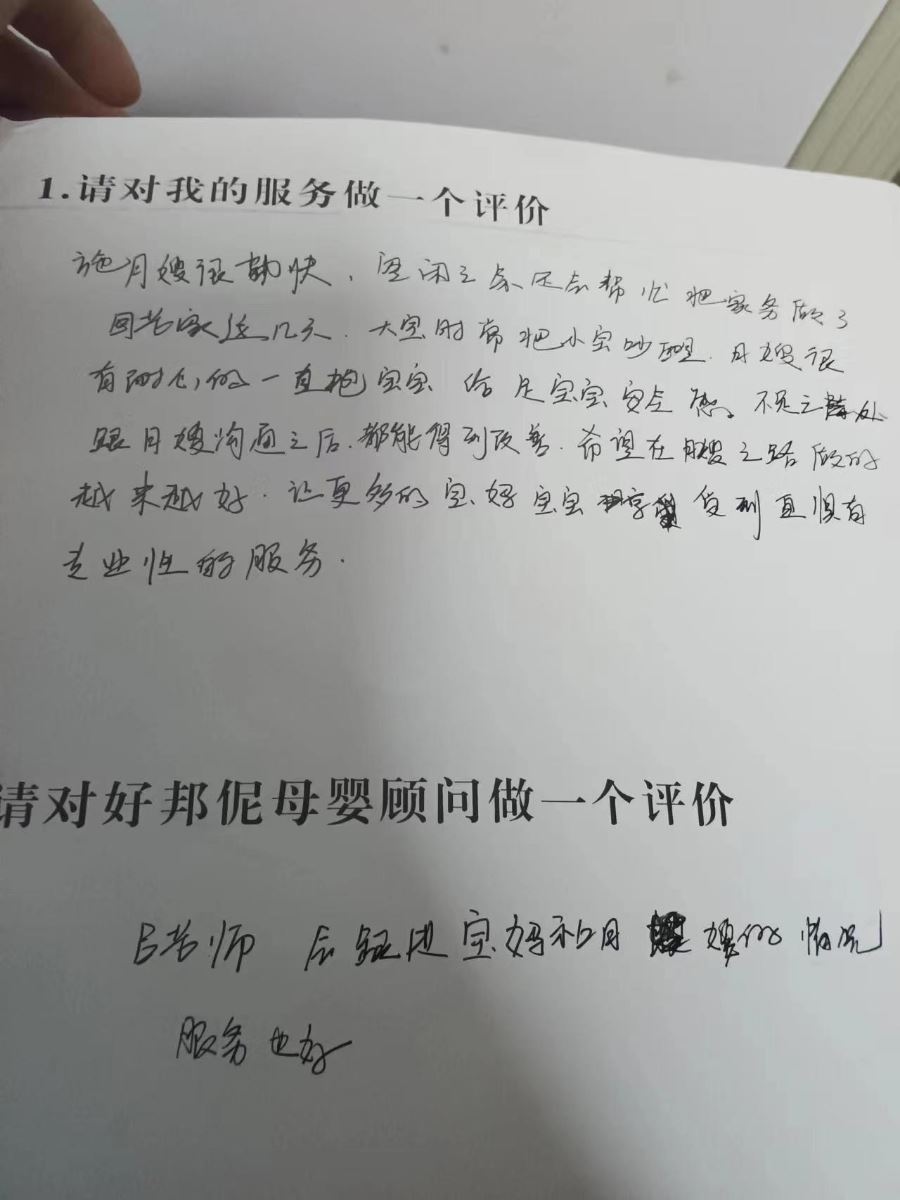 1.请对我的服务做一个评价
施月嫂很勤快，空闲之余还会帮忙把家务做了
回老家这几天.大宝时常把小宝吵醒.月嫂很
有耐心的一直抱宝宝 给足宝宝安全感。不足之处
跟月嫂沟通之后.都能得到改善.希望在月嫂之路做的
越来越好.让更多的宝妈宝宝享受到更俱有
专业性的服务.
请对好邦伲母婴顾问做一个评价
老师 会跟进宝妈和月嫂的情况
服务也好